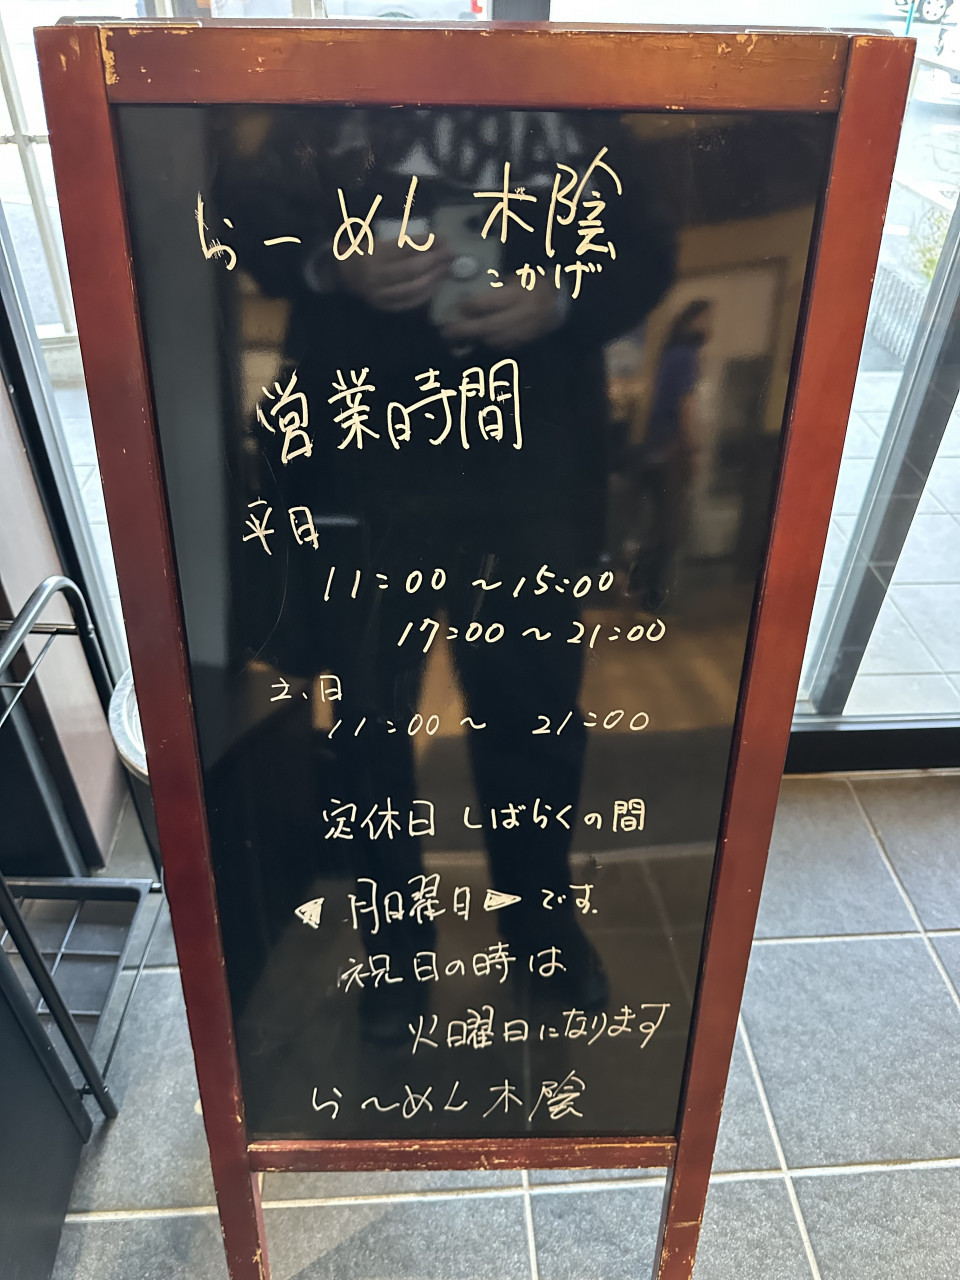 らーめん 木陰
こかげ
営業時間
平日
11:00 〜 15:00
17:00 〜 21:00
土、日
11:00 〜 21:00
定休日 しばらくの間
◀ 月曜日 ▶ です。
祝日の時は
火曜日になります
ら〜めん 木陰